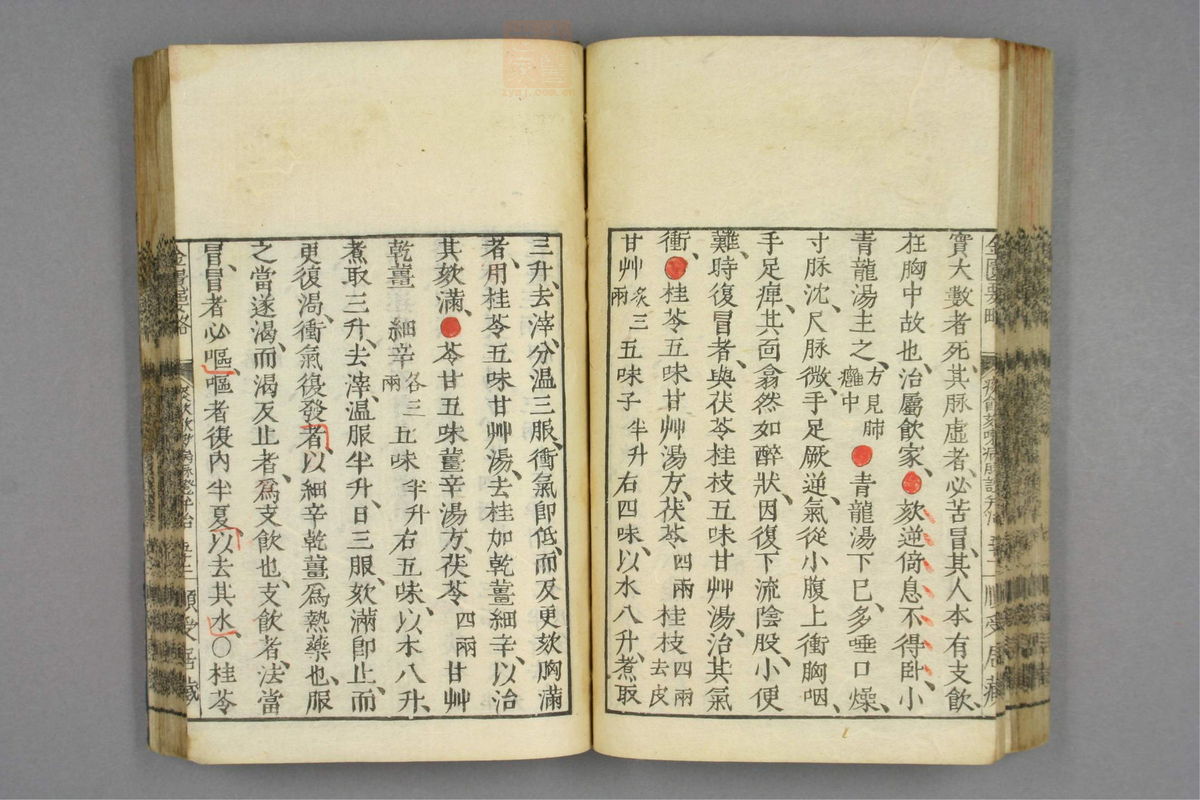 實大數者死、其脉虛者、必苦冒、其人本有支飲、
在胸中故也、治屬飲家、欬逆倚息不得臥、小
青龍湯主之、方見肺癰中 青龍湯下已、多唾口燥、
寸脉沈、尺脉微、手足厥逆、氣從小腹上衝胸咽、
手足痺、其面翕然如醉狀、因復下流陰股、小便
難、時復冒者、與茯苓桂枝五味甘艸湯、治其氣
衝、桂苓五味甘艸湯方、茯苓四兩 桂枝四兩去皮
甘艸炙三兩 五味子半升 右四味、以水八升、煮取
三升、去滓、分溫三服、衝氣卽低、而反更欬胸滿
者、用桂苓五味甘艸湯、去桂加乾薑細辛、以治
其欬滿、苓甘五味薑辛湯方、茯苓四兩 甘艸
乾薑 細辛各三兩 五味半升 右五味、以水八升、
煮取三升、去滓、溫服半升、日三服、欬滿卽止、而
更復渴、衝氣復發者、以細辛乾薑爲熱藥也、服
之當遂渴、而渴反止者、爲支飲也、支飲者、法當
冒、冒者必嘔、嘔者復內半夏、以去其水、○桂苓
金匱要略
順受居藏